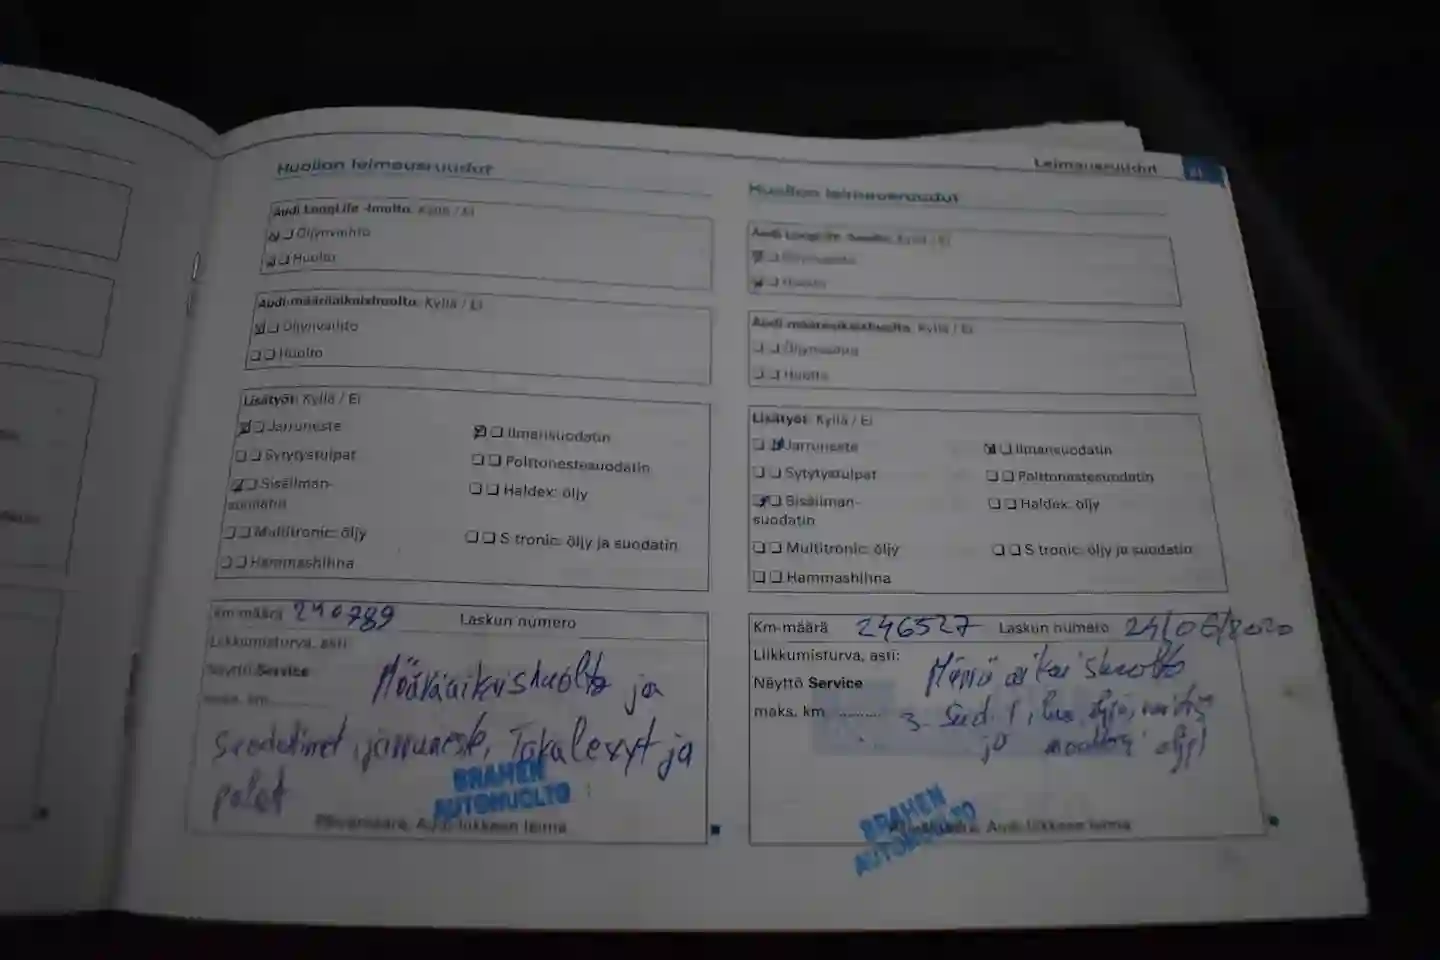 Huollon leimausruudut
Audi LongLife -huolto: Kyllä / Ei
Öljynvaihto
Huolto
Audi-määräaikaishuolto: Kyllä / Ei
Öljynvaihto
Huolto
Lisätyöt: Kyllä / Ei
Jarruneste
Ilmansuodatin
Sytytystulpat
Polttonestesuodatin
Sisäilman-
suodatin
Haldex: öljy
Multitronic: öljy
S tronic: öljy ja suodatin
Hammashihna
Km-määrä 240789 Laskun numero
Liikkumisturva, asti:
Näyttö Service
maks. km
Määräaikaishuolto ja
suodatimet, jarruneste, Takalevyt ja
palat
BRAHEN
AUTOHUOLTO
Päivämäärä, Audi-liikkeen leima
Leimausruudut
Huollon leimausruudut
Audi LongLife -huolto: Kyllä / Ei
Öljynvaihto
Huolto
Audi-määräaikaishuolto: Kyllä / Ei
Öljynvaihto
Huolto
Lisätyöt: Kyllä / Ei
Jarruneste
Ilmansuodatin
Sytytystulpat
Polttonestesuodatin
Sisäilman-
suodatin
Haldex: öljy
Multitronic: öljy
S tronic: öljy ja suodatin
Hammashihna
Km-määrä 246527 Laskun numero 24/06/2020
Liikkumisturva, asti:
Näyttö Service
maks. km
Määräaikaishuolto
3.
ja moottori öljy
BRAHEN
AUTOHUOLTO
Päivämäärä, Audi-liikkeen leima